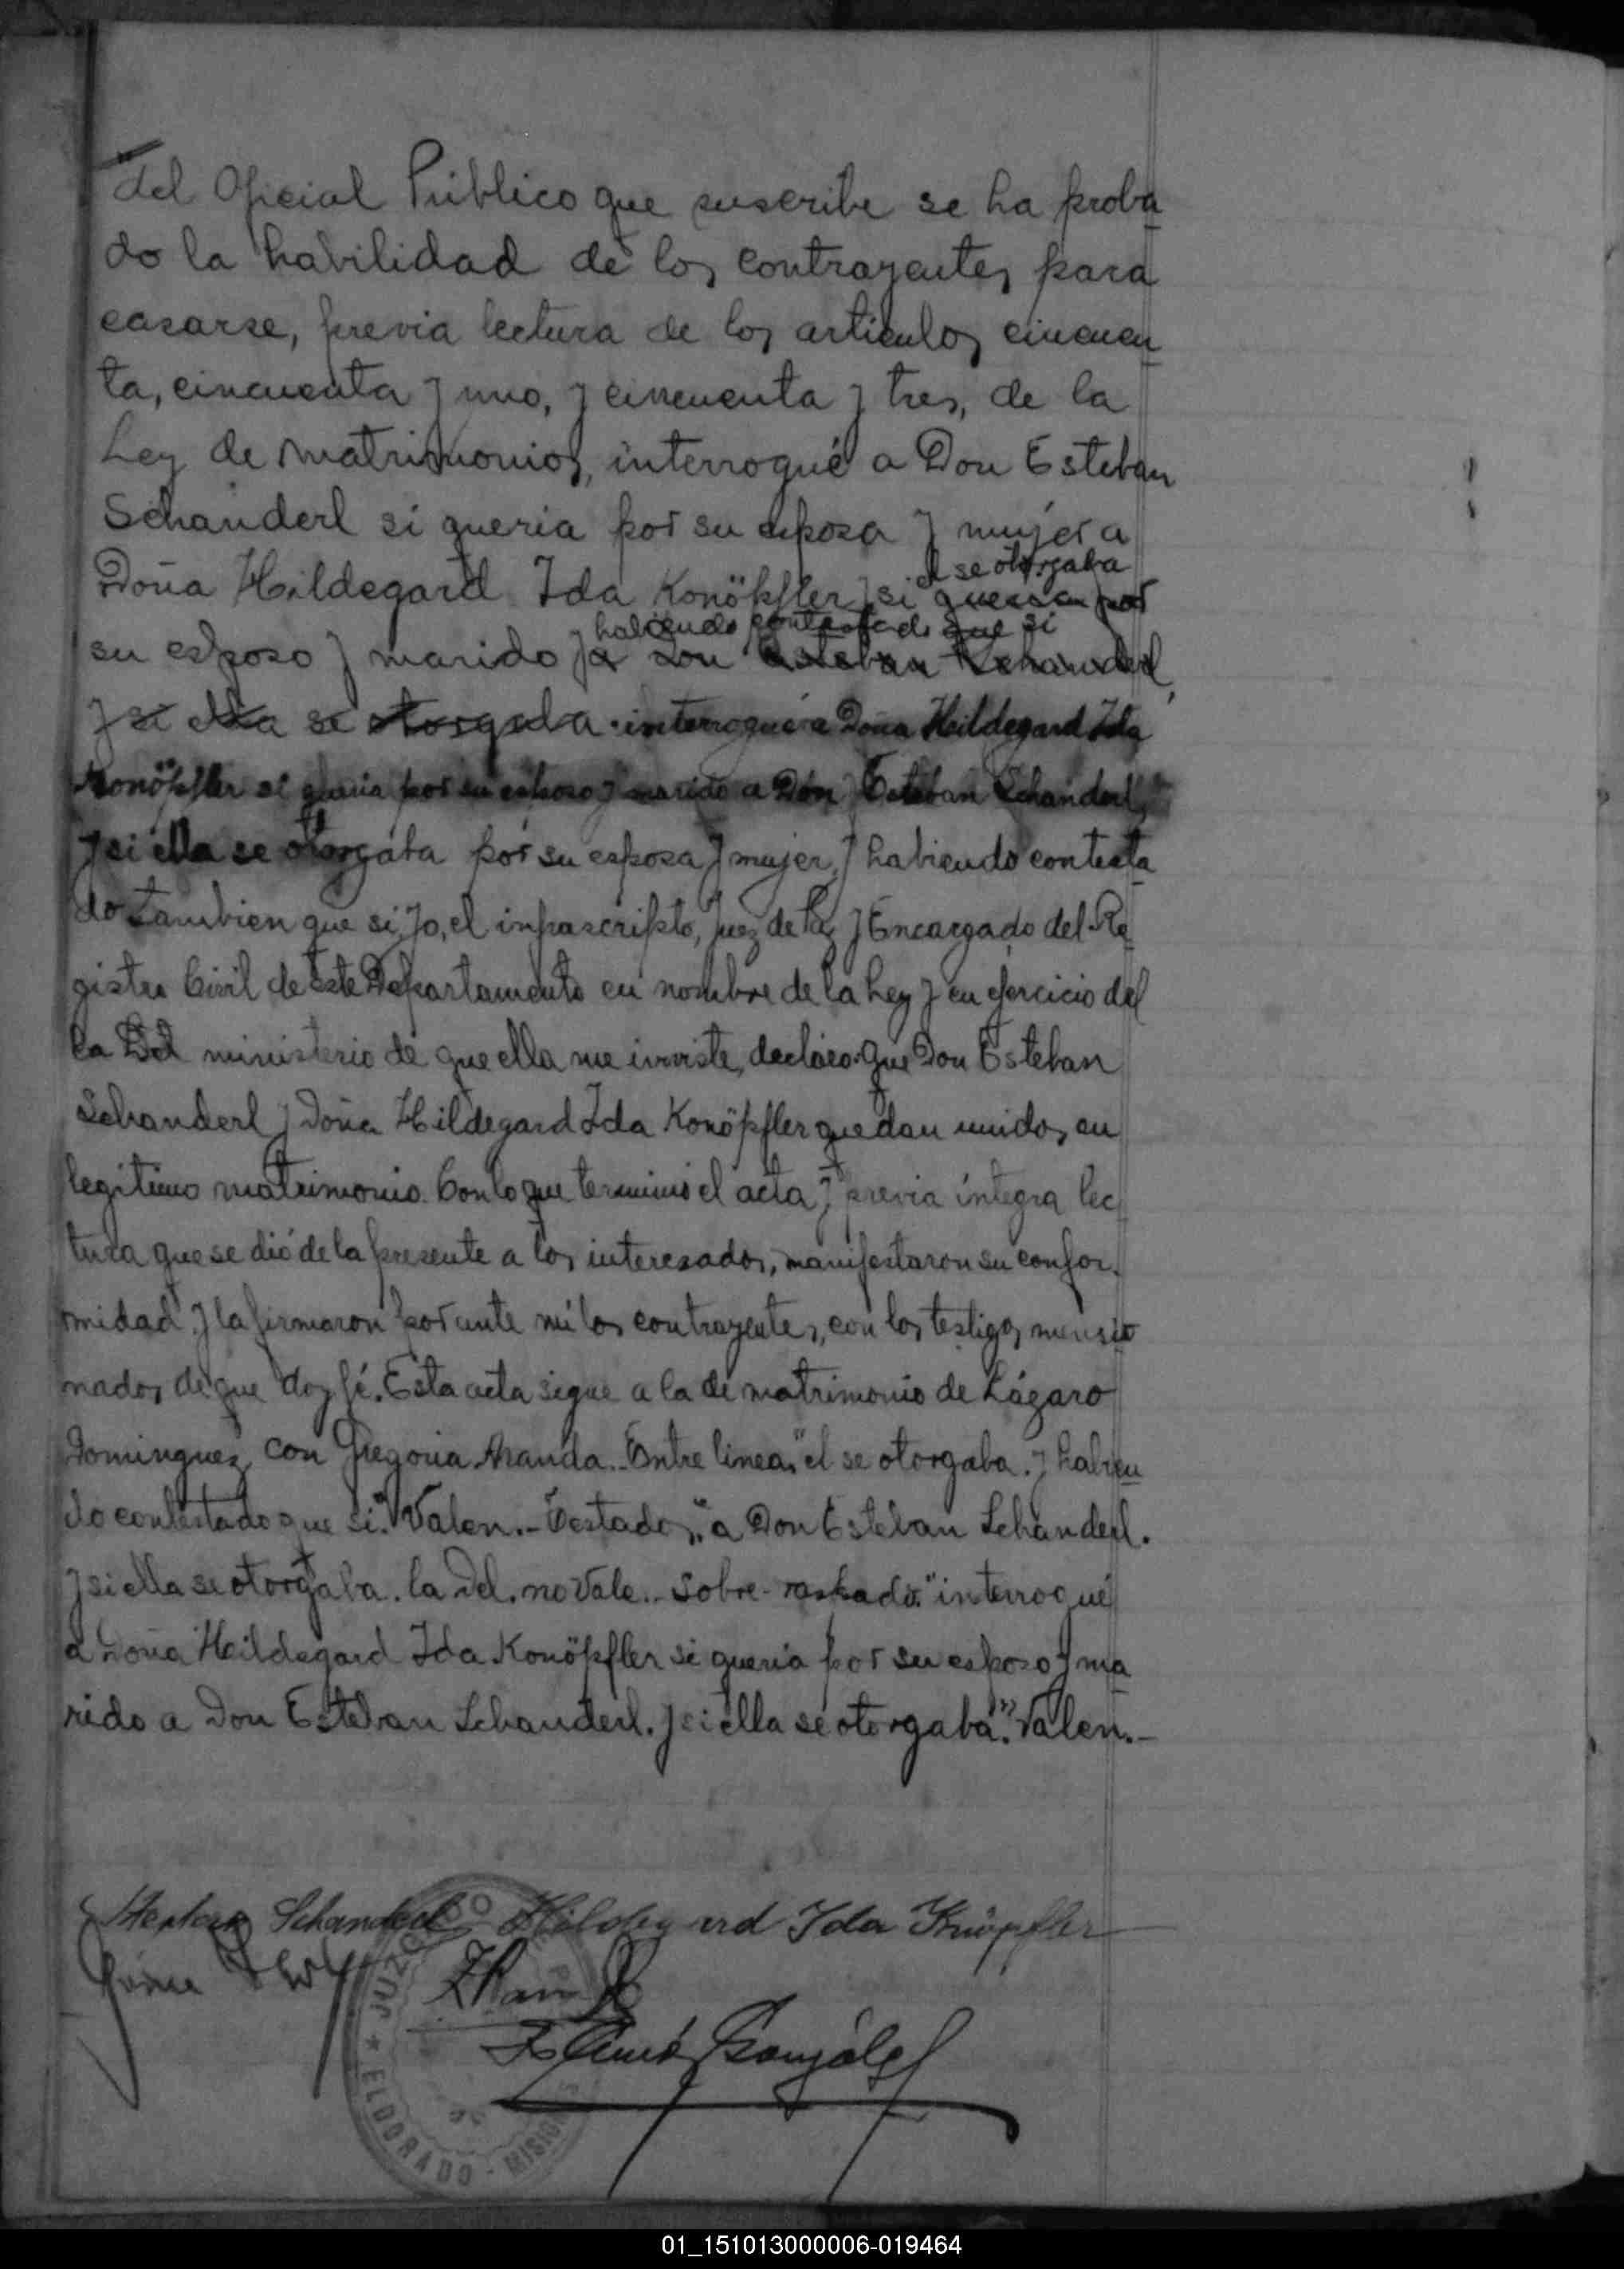 del Oficial Público que suscribe se ha proba
do la habilidad de los contrayentes para
casarse, previa lectura de los articulos cincuen
ta, cincuenta y uno, y cincuenta y tres, de la
Ley de Matrimonios, interrogué a Don Esteban
Schanderl si queria por su esposa y mujer a
el se otorgaba
Doña Hildegard Ida Konöpfler y si queria por
habiendo contestado que si
su esposo y marido y a Don Esteban Schanderl,
y si ella se otorgaba interrogué a Doña Hildegard Ida
Konöpfler si queria por su esposo y marido a Don Esteban Schanderl,
y si ella se otorgaba por su esposa y mujer, y habiendo contesta
do tambien que si, yo, el infrascripto, Juez de Paz y Encargado del Re
gistro Civil de este Departamento en nombre de la Ley y en ejercicio del
la Del ministerio de que ella me inviste, declaro: que Don Esteban
Schanderl y Doña Hildegard Ida Konöpfler quedan unidos en
legitimo matrimonio. Con lo que terminó el acta, y previa íntegra lec
tura que se dió de la presente a los interesados, manifestaron su confor-
midad y la firmaron por ante mi los contrayentes, con los testigos mensio
nados de que doy fé. Esta acta sigue a la de matrimonio de Lázaro
Dominguez con Gregoria Aranda.. Entre lineas "el se otorgaba. y habien
do contestado que si." Valen.- Testados "a Don Esteban Schanderl.
y si ella se otorgaba. la Del. no vale.. Sobre-raspado: "interrogué
a Doña Hildegard Ida Konöpfler si queria por su esposo y ma
rido a Don Esteban Schanderl. y si ella se otorgaba". Valen.-
Schanderl Hildegard Ida Knöpfler
González
JUZGADO
★ ELDORADO - MISIONES
01_151013000006-019464